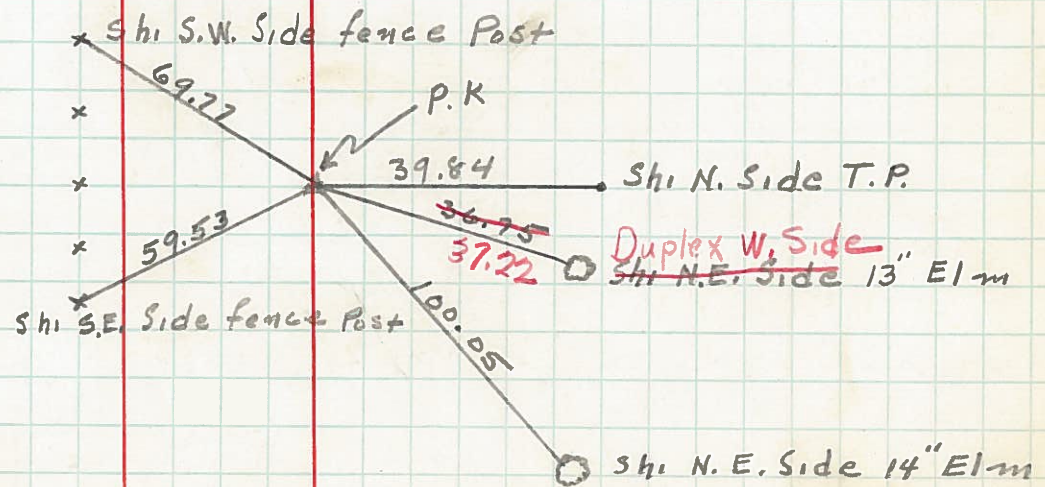 Shi S.W. Side fence Post
69.77
P.K
39.84
Shi N. Side T.P.
36.75
37.22
Duplex W. Side
Shi N.E. Side 13" Elm
59.53
Shi S.E. Side fence Post
100.05
Shi N.E. Side 14" Elm